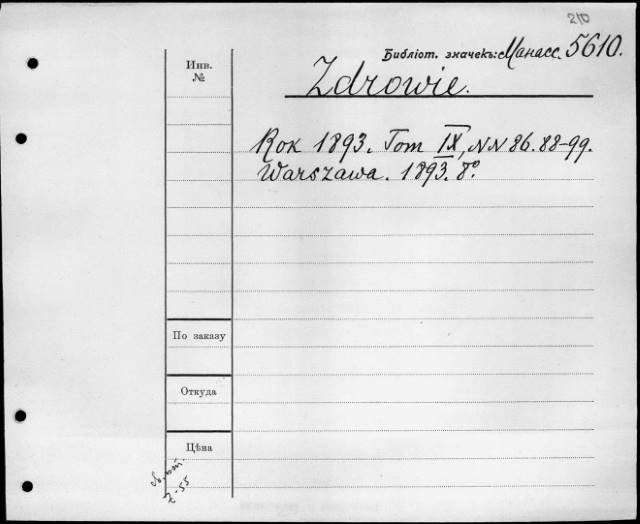 210
Библіот. значекъ: Манасс. 5610.
Инв.
№
Zdrowie.
Rok 1893. Tom IX, NN 86. 88-99.
Warszawa. 1893. 8°.
По заказу
Откуда
Цѣна
2-55